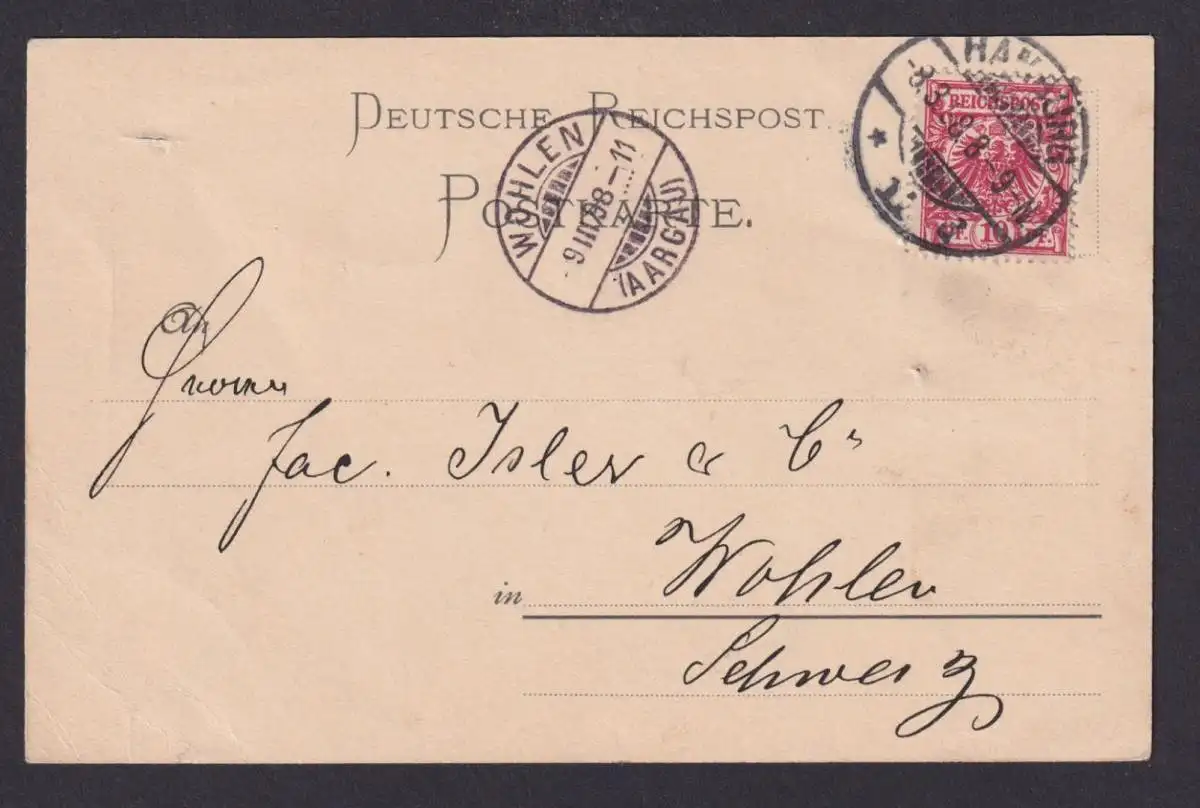 DEUTSCHE REICHSPOST
POSTKARTE.
WOHLEN
9 III 98 – 11
(AARGAU)
HAN
8.3.98 8-9 N
REICHSPOST
10
An
Jac. Isler & Cⁱᵉ
in Wohlen
Schweiz